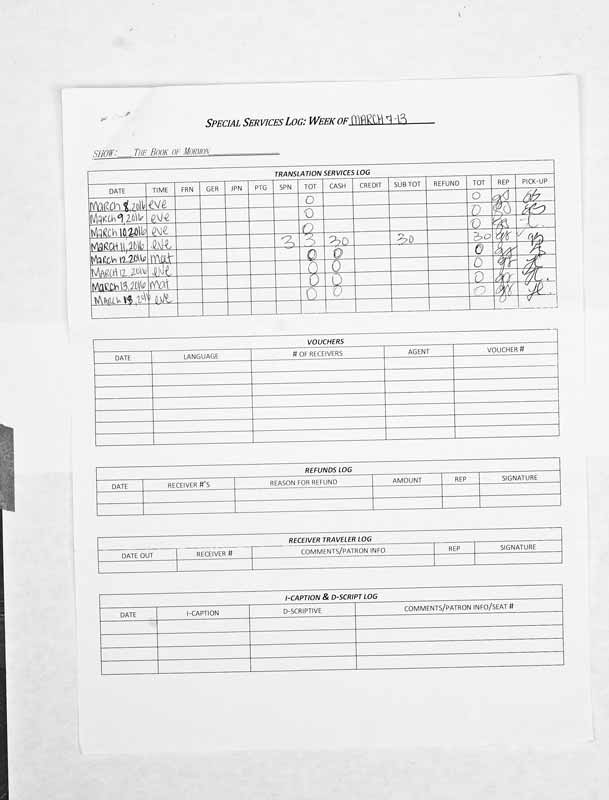 SPECIAL SERVICES LOG: WEEK OF MARCH 7-13
SHOW: THE BOOK OF MORMON
TRANSLATION SERVICES LOG
DATE TIME FRN GER JPN PTG SPN TOT CASH CREDIT SUB TOT REFUND TOT REP PICK-UP
March 8, 2016 eve 0 0
March 9, 2016 eve 0 0
March 10 2016 eve 0 0
March 11, 2016 eve 3 3 30 30 30
March 12, 2016 mat 0 0 0
March 12, 2016 eve 0 0 0
March 13, 2016 mat 0 0 0
March 13, 2016 eve 0 0 0
VOUCHERS
DATE LANGUAGE # OF RECEIVERS AGENT VOUCHER #
REFUNDS LOG
DATE RECEIVER #'S REASON FOR REFUND AMOUNT REP SIGNATURE
RECEIVER TRAVELER LOG
DATE OUT RECEIVER # COMMENTS/PATRON INFO REP SIGNATURE
I-CAPTION & D-SCRIPT LOG
DATE I-CAPTION D-SCRIPTIVE COMMENTS/PATRON INFO/SEAT #